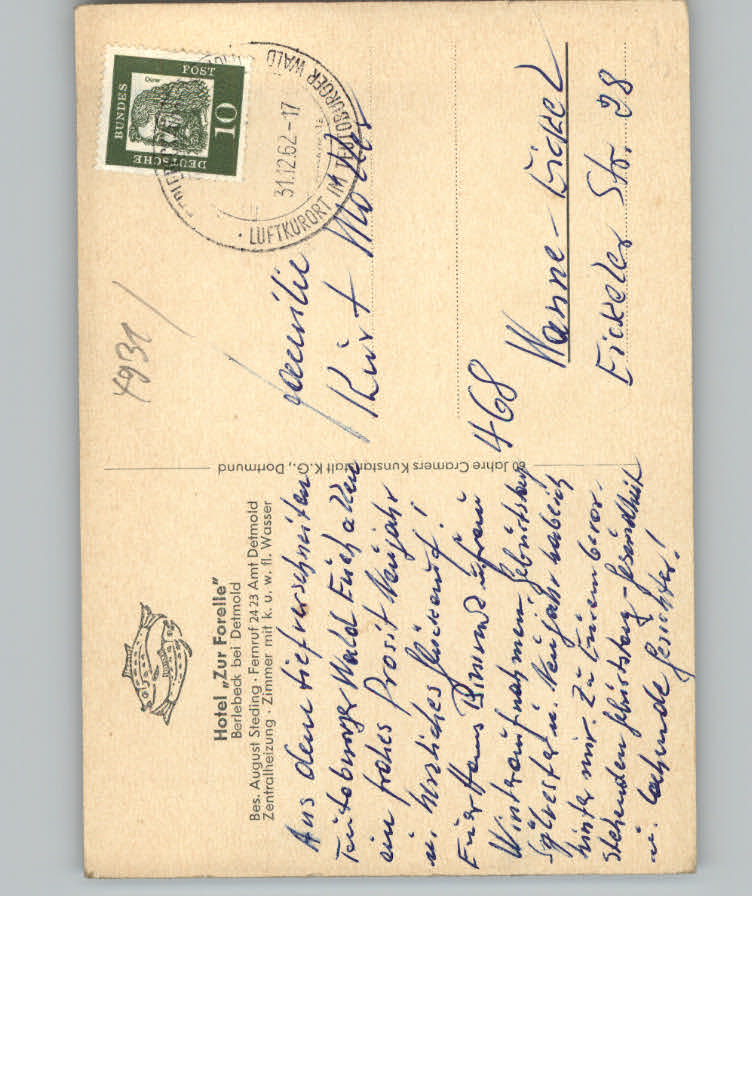 Hotel „Zur Forelle"
Berlebeck bei Detmold
Bes. August Steding · Fernruf 2423 Amt Detmold
Zentralheizung · Zimmer mit k. u. w. fl. Wasser
Aus dem tiefverschneiten
Teutoburger Wald Euch allen
ein frohes Prosit Neujahr
u. herzliches Glückauf!
Euer Hans
Winteraufnahmen, Geburtstag
Sylvester u. Neujahr habe ich
hinter mir. Zu Eurem bevor-
stehenden Geburtstag Gesundheit
u. lachende Gesichter!
60 Jahre Cramers Kunstanstalt K.G., Dortmund
4931
DEUTSCHE
BUNDES
POST
10
31.12.62-17
LUFTKURORT IM TEUTOBURGER WALD
Familie
Kurt
468 Wanne-Eickel
Eickeler Str. 28